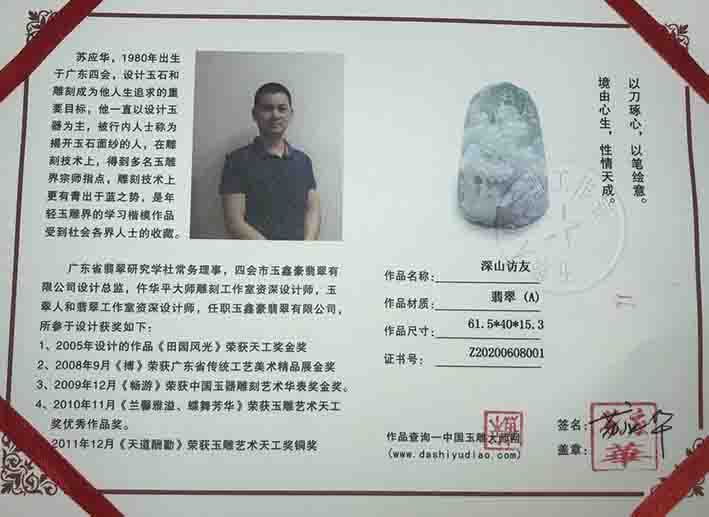 苏应华，1980年出生
于广东四会，设计玉石和
雕刻成为他人生追求的重
要目标，他一直以设计玉
器为主，被行内人士称为
揭开玉石面纱的人，在雕
刻技术上，得到多名玉雕
界宗师指点，雕刻技术上
更有青出于蓝之势，是年
轻玉雕界的学习楷模作品
受到社会各界人士的收藏。
广东省翡翠研究学社常务理事，四会市玉鑫豪翡翠有
限公司设计总监，仵华平大师雕刻工作室资深设计师，玉
翠人和翡翠工作室资深设计师，任职玉鑫豪翡翠有限公司，
所参于设计获奖如下：
1、2005年设计的作品《田园风光》荣获天工奖金奖
2、2008年9月《博》荣获广东省传统工艺美术精品展金奖
3、2009年12月《畅游》荣获中国玉器雕刻艺术华表奖金奖。
4、2010年11月《兰馨雅溢、蝶舞芳华》荣获玉雕艺术天工
奖优秀作品奖。
2011年12月《天道酬勤》荣获玉雕艺术天工奖铜奖
以刀琢心，以笔绘意。
境由心生，性情天成。
作品名称：深山访友
作品材质：翡翠（A）
作品尺寸：61.5*40*15.3
证书号：Z20200608001
作品查询—中国玉雕大师网
(www.dashiyudiao.com)
签名：苏应华
盖章：